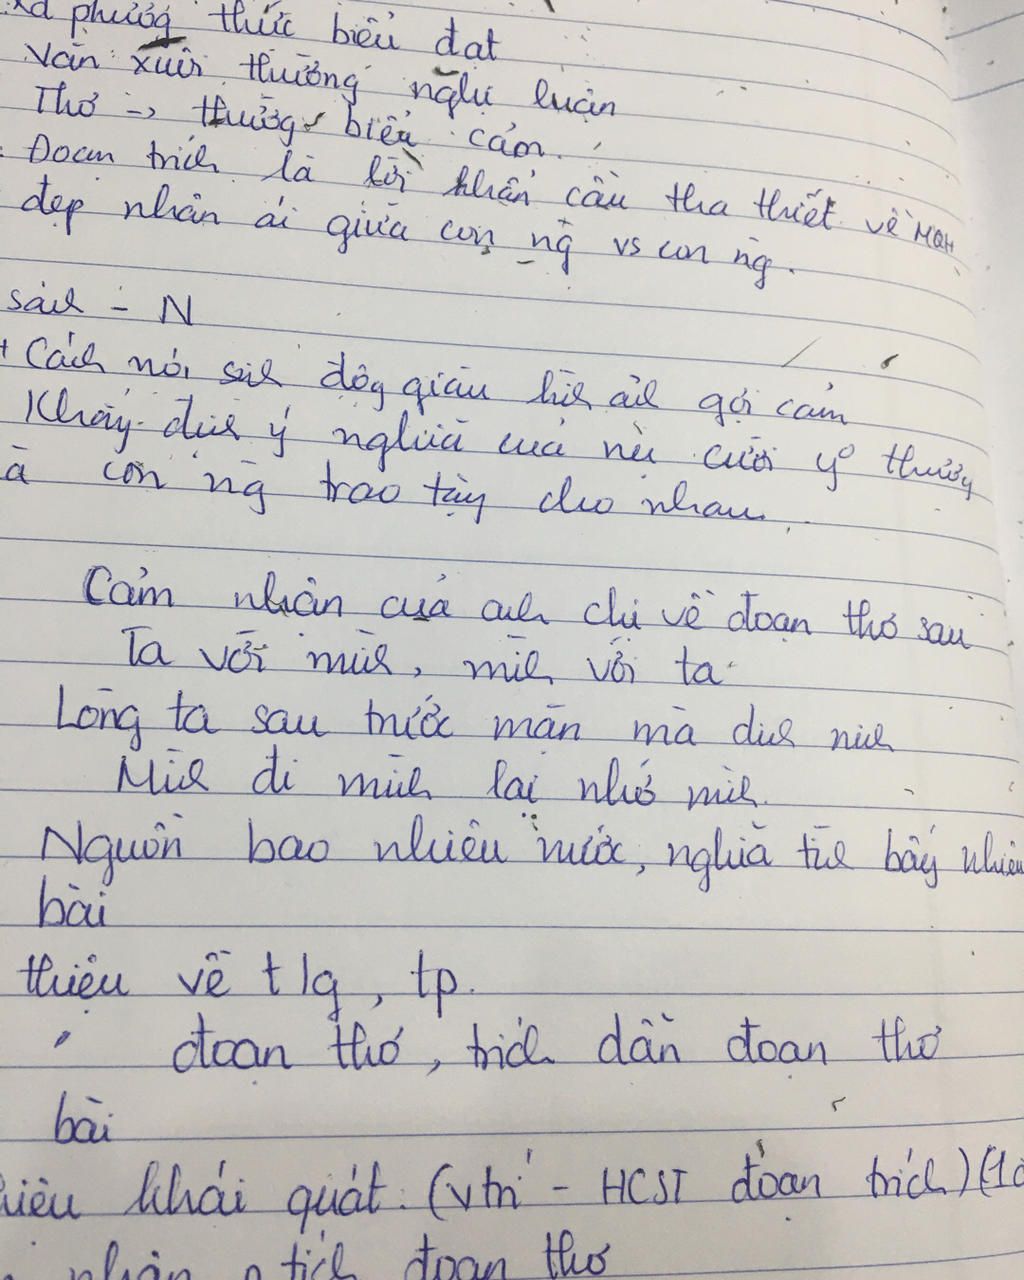 xđ phương thức biểu đạt
Văn xuôi thường nghị luận
Thơ -> thường biểu cảm.
Đoạn trích là lời khẩn cầu tha thiết về MQH
đẹp nhân ái giữa con ng vs con ng.
sách - N
+ Cách nói sih độg giàu hìh ảh gợi cảm
Khẳg địh ý nghĩa của nụ cười yº thương
à con ng trao tặg cho nhau
Cảm nhận của anh chị về đoạn thơ sau
Ta với mìh, mìh với ta
Lòng ta sau trước mặn mà đih nih
Mìh đi mìh lại nhớ mìh
Nguồn bao nhiêu nước, nghĩa tìh bấy nhiêu
bài
thiệu về t/g, tp.
" đoạn thơ, trích dẫn đoạn thơ
bài
khái quát: (vtrí - HCST đoạn trích)
nhận tích đoạn thơ